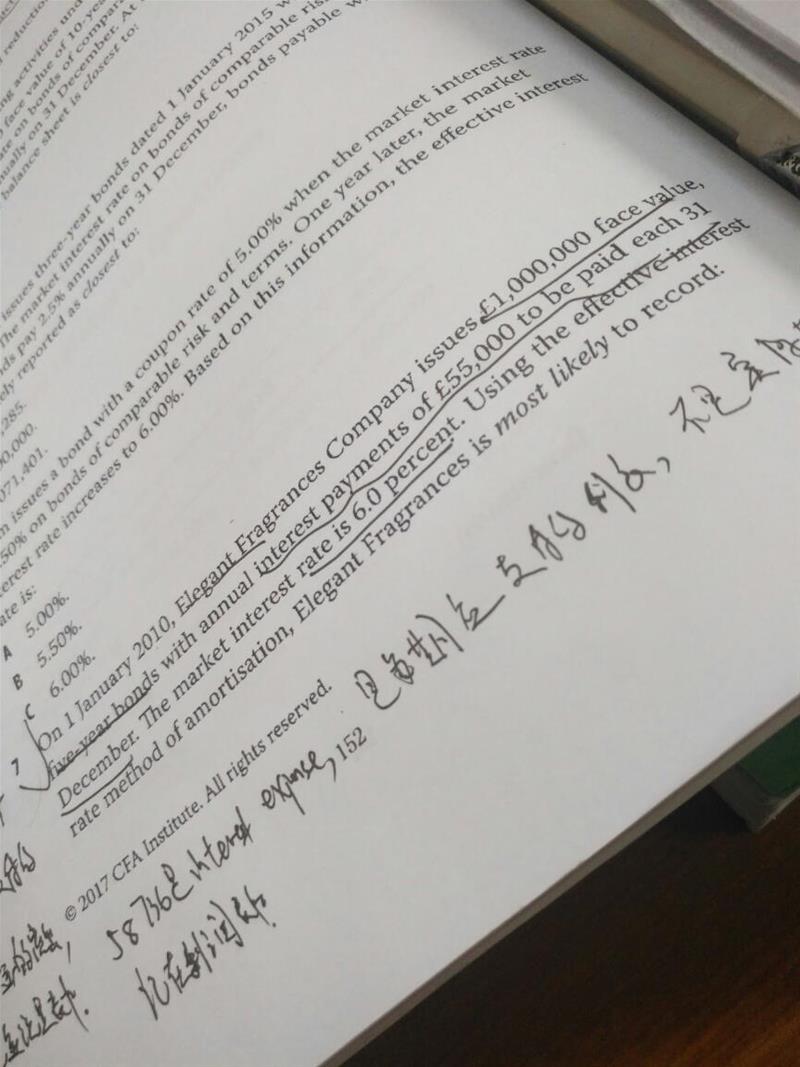 reduction
ng activities und
face value of 10-yea
te on bonds of compara
nually on 31 December. At
balance sheet is closest to:
issues three-year bonds dated 1 January 2015 w
The market interest rate on bonds of comparable ris
nds pay 2.5% annually on 31 December, bonds payable w
ely reported as closest to:
,285.
00,000.
071,401.
m issues a bond with a coupon rate of 5.00% when the market interest rate
.50% on bonds of comparable risk and terms. One year later, the market
terest rate increases to 6.00%. Based on this information, the effective interest
ate is:
A 5.00%.
B 5.50%.
C 6.00%.
7 On 1 January 2010, Elegant Fragrances Company issues £1,000,000 face value,
five-year bonds with annual interest payments of £55,000 to be paid each 31
December. The market interest rate is 6.0 percent. Using the effective interest
rate method of amortisation, Elegant Fragrances is most likely to record:
© 2017 CFA Institute. All rights reserved.
58736是 interest expense, 152 是每期应支付的利息, 不是实际
记在利润表.
支付的